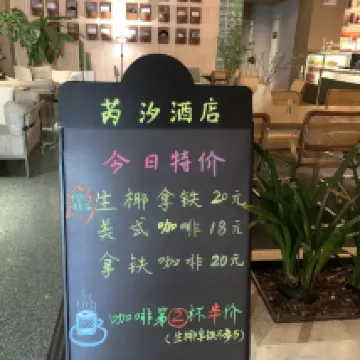 芮汐酒店
今日特价
生椰拿铁 20元
美式咖啡 18元
拿铁咖啡 20元
咖啡第②杯半价
(生椰拿铁不参与)